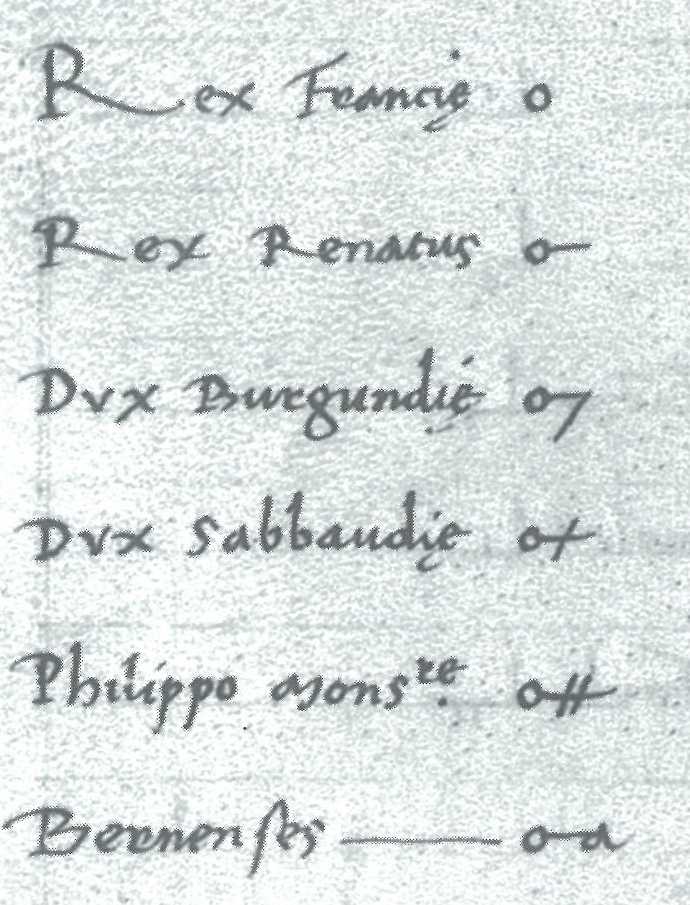 Rex Francię o
Rex Renatus o–
Dvx Burgundię o7
Dvx Sabbaudię o+
Philippo Mons.re o#
Bernenses —— o–a